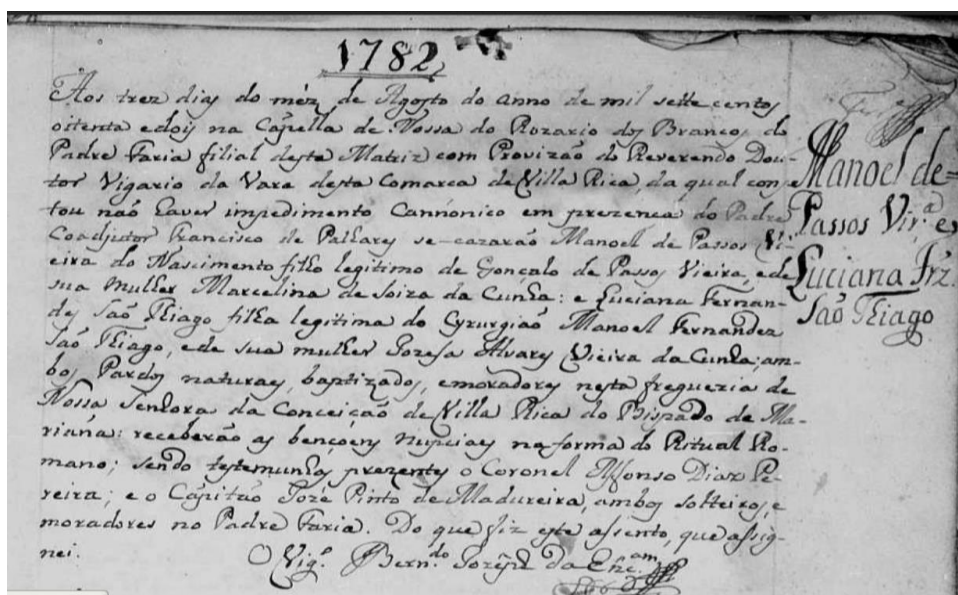 1782
Aos trez dias do mêz de Agosto do anno de mil sette centos
oitenta edois na Capella de Nossa do Rozario dos Brancos do
Padre Faria filial desta Matriz com Provizão do Reverendo Dou-
tor Vigario da Vara desta Comarca de Villa Rica, da qual cons-
tou não haver impedimento Cannonico em prezença do Padre
Coadjutor Francisco de Palhares se-cazarão Manoel de Passos Vi-
eira do Nascimento filho legitimo de Gonçalo de Passos Vieira, ede
sua Mulher Marcelina de Soiza da Cunha: e Luciana Fernan-
des São Thiago filha legitima do Cyrurgião Manoel Fernandez
São Thiago, ede sua mulher Jozefa Alvares Vieira da Cunha; am-
bos Pardos naturaes, baptizados, emoradores nesta freguezia de
Nossa Senhora da Conceição de Villa Rica do Bispado de Ma-
riána: receberão as bençoens nupciaes na forma do Ritual Ro-
mano; sendo testemunhas prezentes o Coronel Affonso Dias Pe-
reira; e o Capitão Jozé Pinto de Madureira, ambos solteiros, e
moradores no Padre Faria. Do que fiz este assento, que assig-
nei.
O Vig.º Bern.do Jozé da Enc.am
Manoel de=
Passos Vir.ª e,
Luciana Frz.
São Thiago